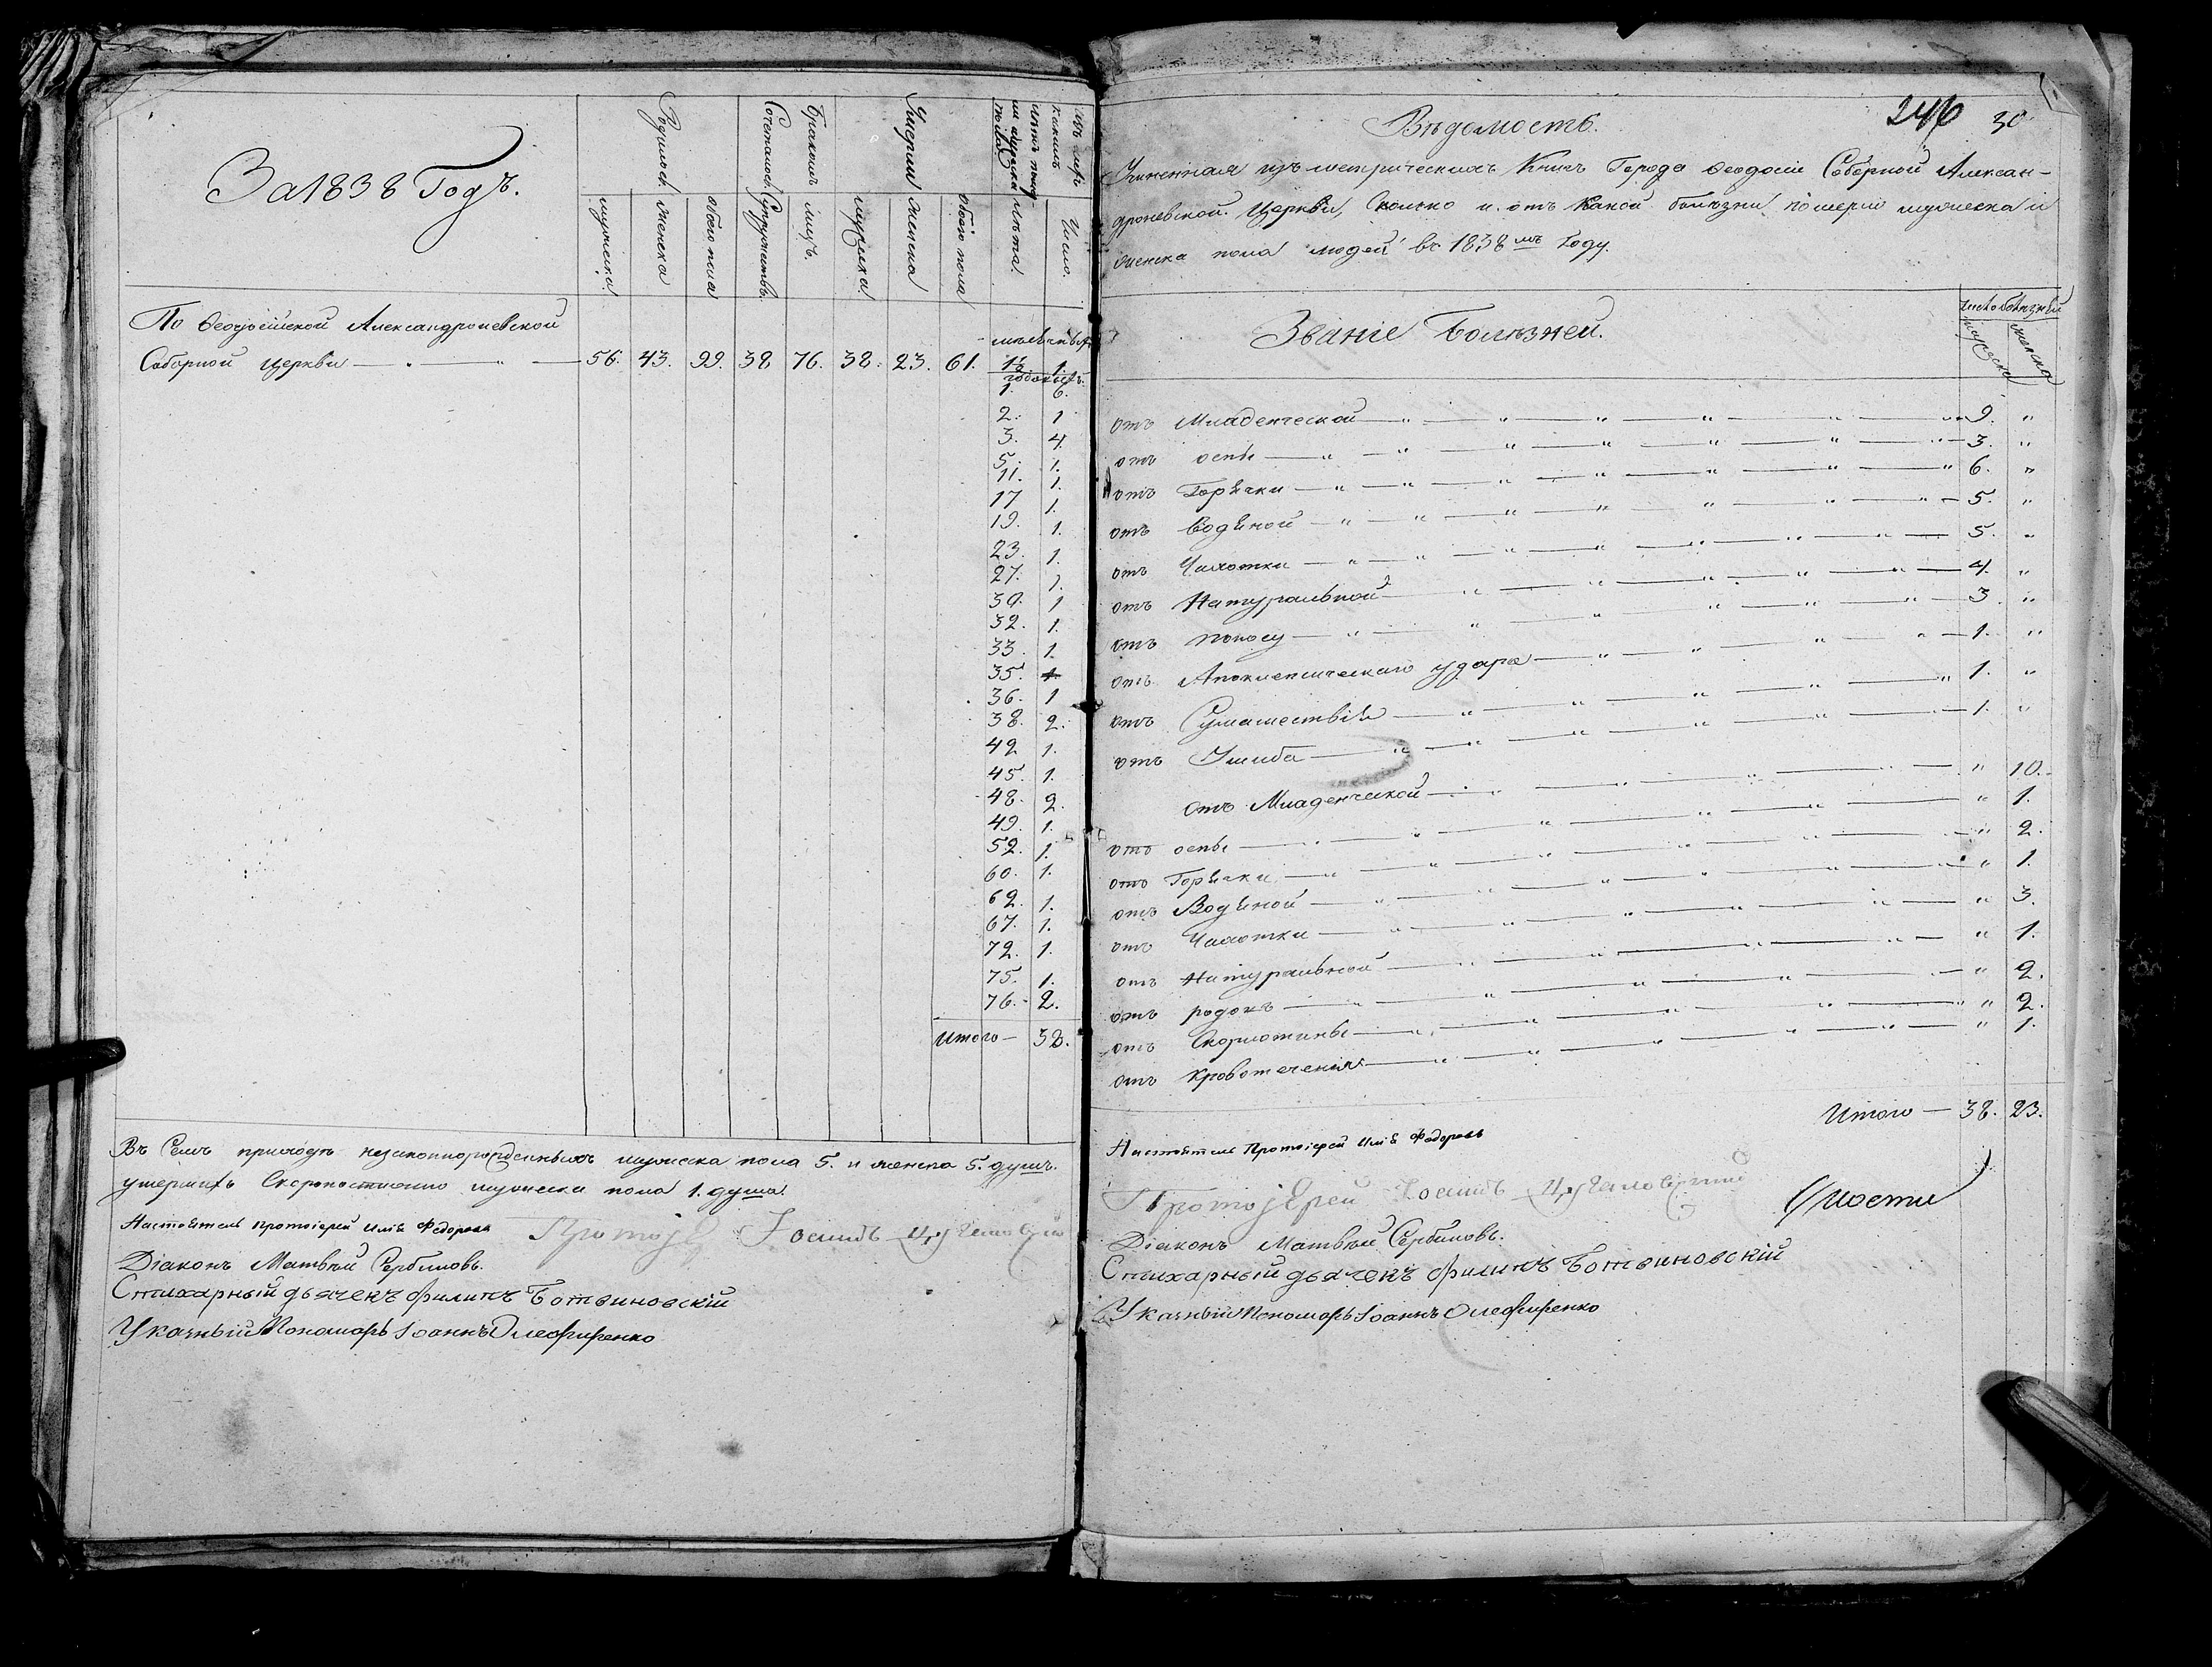 За 1838 Годъ.
Родилось.
мужеска
женска
обоего пола
Бракомъ Сочеталось.
Супружествъ.
лицъ.
Умерли
мужеска
женска
обоего пола
лѣта.
Число.
По Ѳеодосійской Александроневской
Соборной церкви — 56. 43. 99. 38 76. 38. 23. 61.
1.
1. 6.
2. 1
3. 4.
5. 1.
11. 1.
17 1.
19. 1.
23. 1.
27. 1.
30. 1
32. 1.
33. 1
35. 1.
36. 1
38. 2.
42 1.
45. 1.
48. 2.
49. 1.
52. 1.
60. 1.
62. 1.
67. 1.
72. 1.
75. 1.
76. 2.
Итого — 38.
Въ Семъ приходѣ незаконнорожденныхъ мужеска пола 5. и женска 5. душъ.
умершихъ Скоропостижно мужеска пола 1. душа.
Настоятель Протоіерей Илія Федоровъ
Протоіерей Іосифъ
Діаконъ Матвѣй Сербиновъ.
Стихарный дьячекъ Филипъ Ботвиновскій
Указный Пономарь Іоаннъ Олефиренко
246 30
Вѣдомость.
Учиненная изъ метрическихъ Книгъ Города Ѳеодосіи Соборной Алексан-
дроневской Церкви, Сколько и отъ Какой болѣзни померло мужеска и
женска пола людей въ 1838мъ Году.
Званіе Болѣзней.
Число болѣзней
мужеска
женска
отъ Младенческой — 9. "
отъ оспы — 3. "
отъ Горячки — 6. "
отъ Водяной — 5. "
отъ Чахотки — 5. "
отъ Натуральной — 4. "
отъ поносу — 3. "
отъ Апоплексическаго удара — 1. "
отъ Сумашествія — 1. "
отъ Ушиба — 1. "
отъ Младенческой — " 10.
отъ оспы — " 1.
отъ Горячки — " 2.
отъ Водяной — " 1.
отъ Чахотки — " 3.
отъ Натуральной — " 1.
отъ родовъ — " 2.
отъ Скорлотины — " 2.
отъ Кровотеченія — " 1.
Итого — 38. 23.
Настоятель Протоіерей Илія Федоровъ
Протоіерей Іосифъ
Діаконъ Матвѣй Сербиновъ.
Стихарный дьячекъ Филипъ Ботвиновскій
Указный Пономарь Іоаннъ Олефиренко